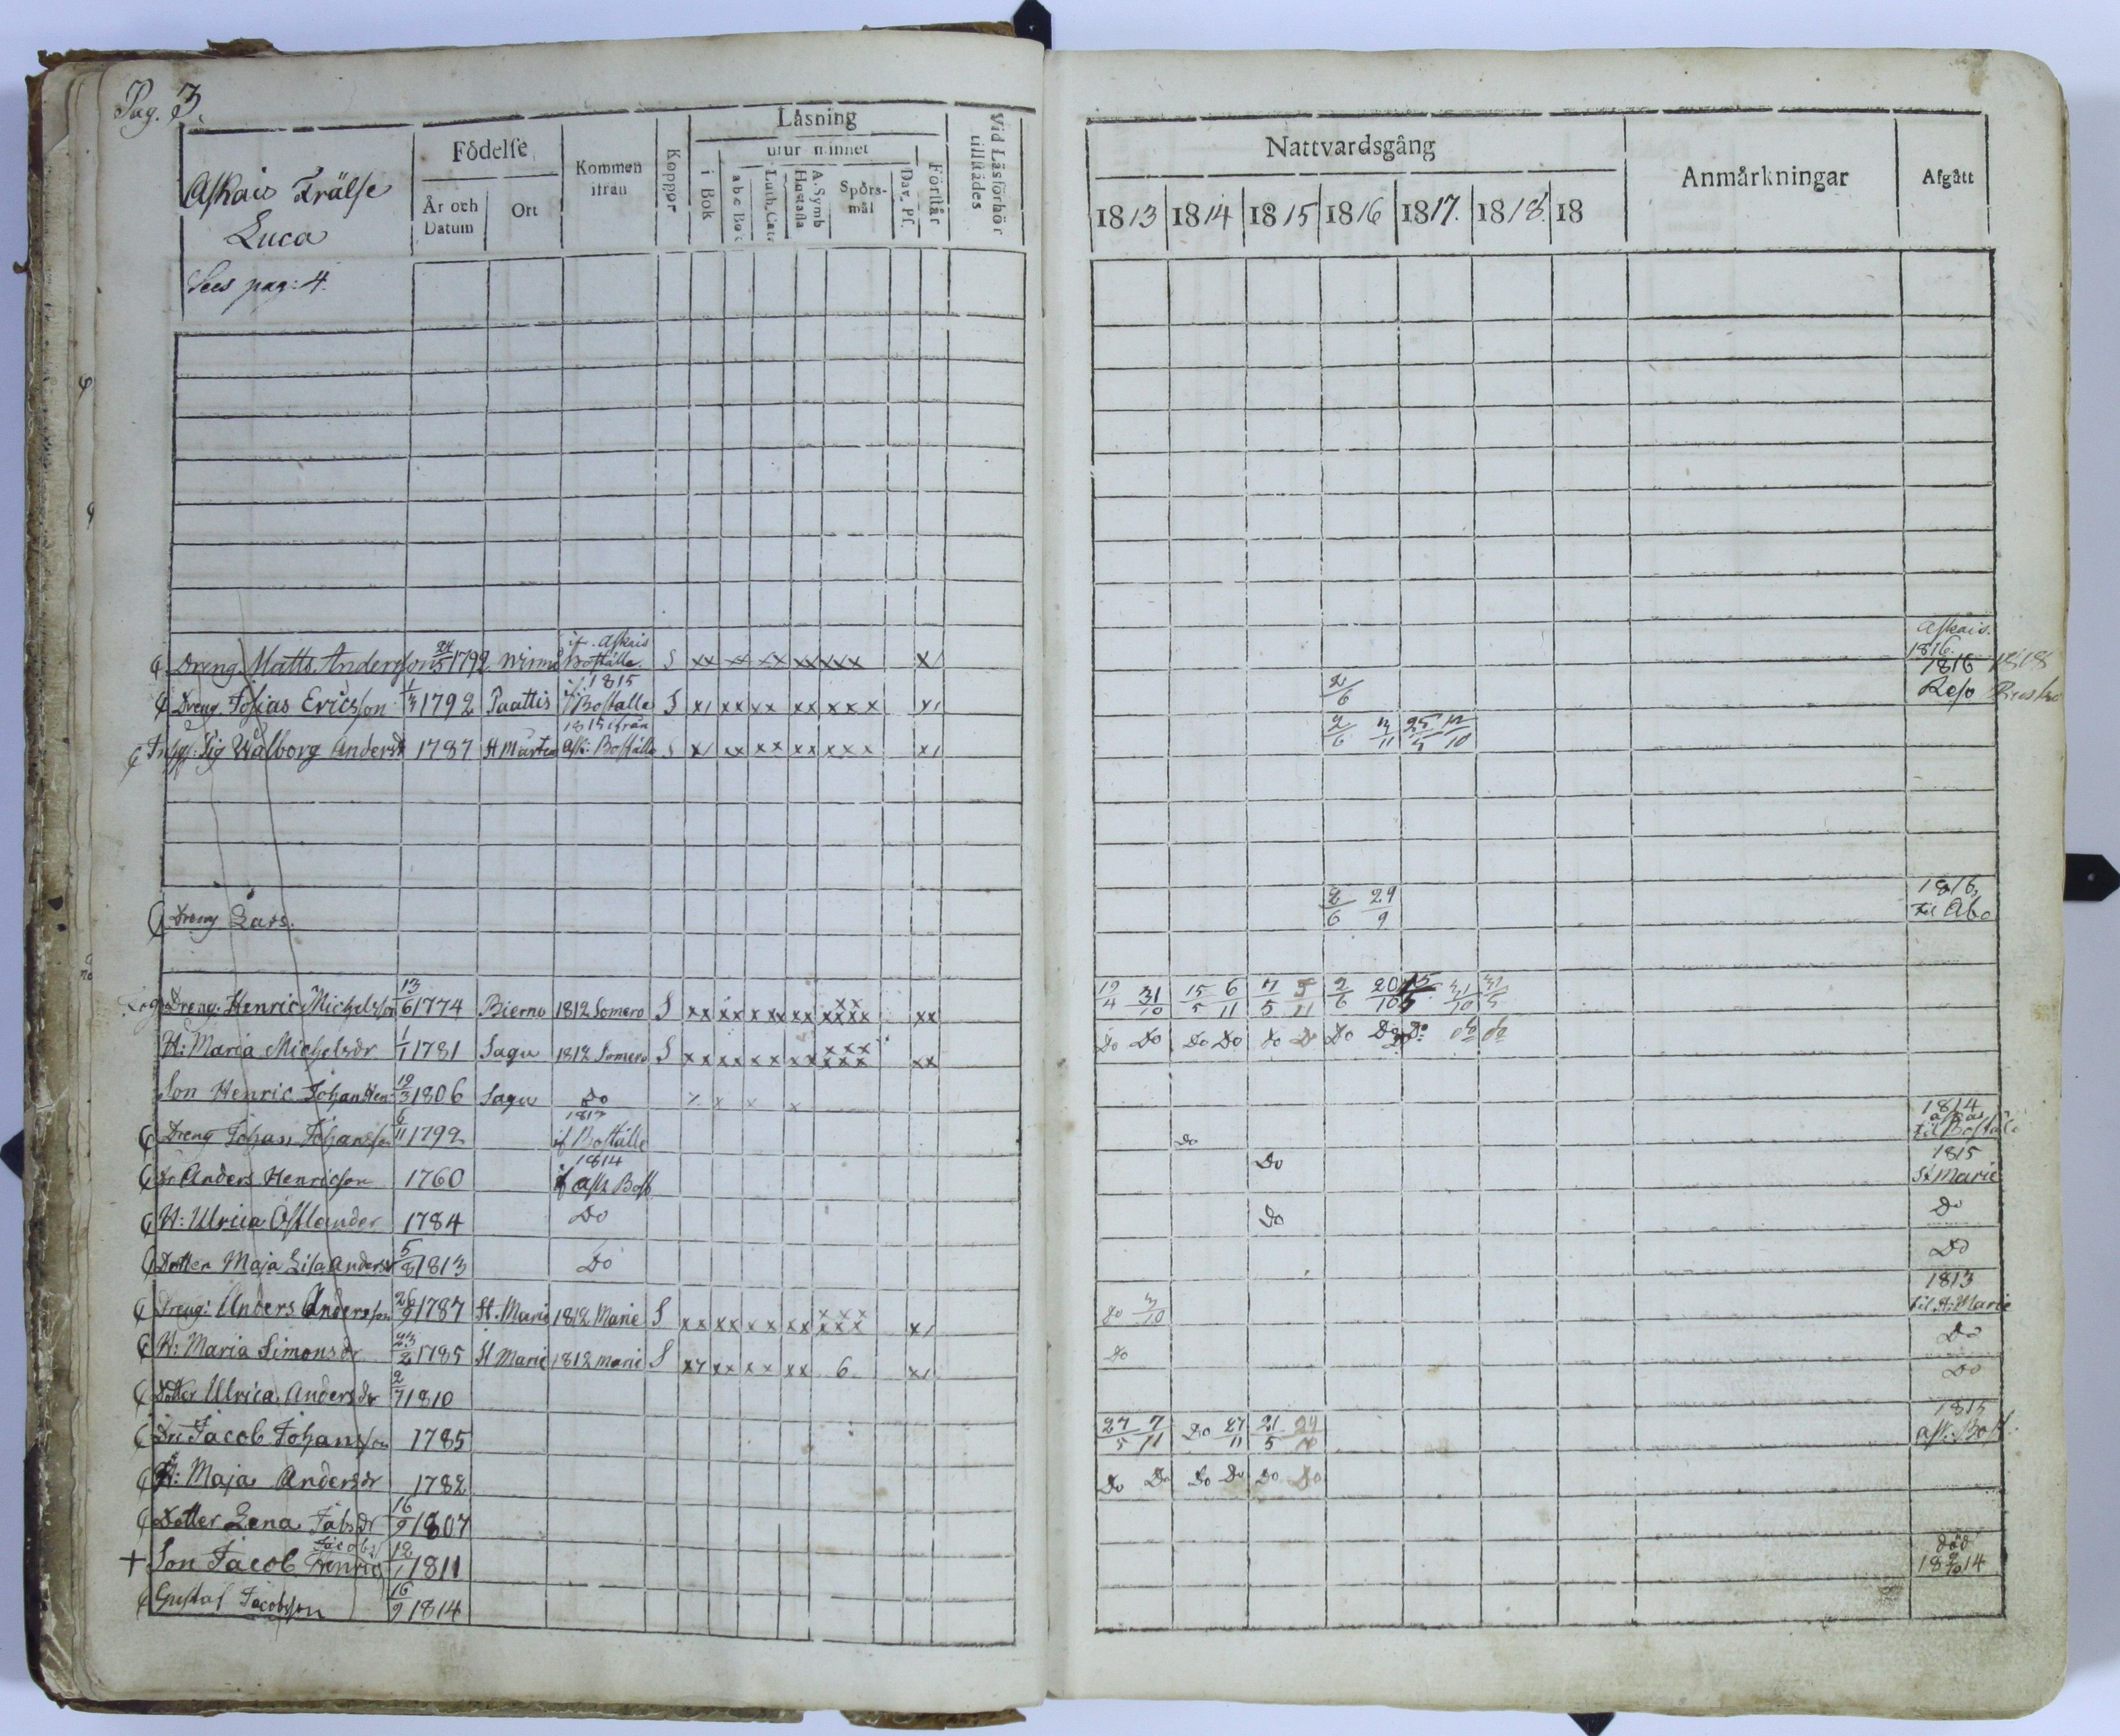 Pag. 3.
Askais Frälse
Luca
Sees pag: 4.
Födelse
År och Datum
Ort
Kommen ifrån
Koppor
Läsning
i Bok
utur minnet
a b c Bok
Luth. Cat.
Hustafla
A. Symb
Spörsmål
Dav. Ps.
Förstår
Vid Läsförhör tillstädes
Nattvardsgång
1813 1814 1815 1816 1817. 1818. 18
Anmärkningar
Afgått
Dreng Matts Andersson 24/5 1792 Wirmo if. Askais Boställe S xx xx xx xx xxx x/ Askais. 1816.
Dreng Josias Ericsson 1/3 1792 Paattis if. 1815 Boställe S x/ xx xx xx xxx x/ 2/6 1816 Reso 1818 Rusko
Sig Walborg Andersdr 1787 St Mårtens 1815 ifrån Ask: Boställe S x/ xx xx xx xxx x/ 2/6 3/11 25/5 12/10
Dreng Lars. 2/6 29/9 1816, til Åbo
Dreng. Henric Michelsson 13/6 1774 Bierno 1812 Somero S xx xx xx xx xx xxxx xx 19/4 31/10 15/5 6/11 7/5 5/11 2/6 20/10 15/5 31/10 31/5
H: Maria Michelsdr 1/1 1781 Sagu 1812 Somero S xx xx xx xx xxx xxx xx Do Do Do Do Do Do Do Do Do Do Do
Son Henric Johan Hen 19/3 1806 Sagu Do x x x x
Dreng Johan Johansson 6/11 1792 1813 if Boställe Do 1814 Askais til Boställe
Dr Anders Henricson 1760 1814 if Ask Bost Do 1815 St Marie
H: Ulrica Ostlander 1784 Do Do Do
Dotter Maja Lisa Andersdr 5/8 1813 Do Do
Dreng: Anders Andersson 26/9 1787 St. Marie 1812 Marie S xx xx xx xx xxx xxx x/ Do 3/10 1813 til St: Marie
H: Maria Simonsdr 23/2 1785 St Marie 1812 Marie S xx xx xx xx 6 x/ Do Do
Dotter Ulrica Andersdr 2/7 1810 Do
Dr: Jacob Johansson 1785 27/5 7/11 Do 27/11 21/5 29/10 1815 ask: Bost:
H: Maja Andersdr 1782 Do Do Do Do Do Do
Dotter Lena Jabsdr 16/9 1807
+ Son Jacob Henric Jacobs 12/1 1811 död 18 2/10 14
Gustaf Jacobsson 16/9 1814